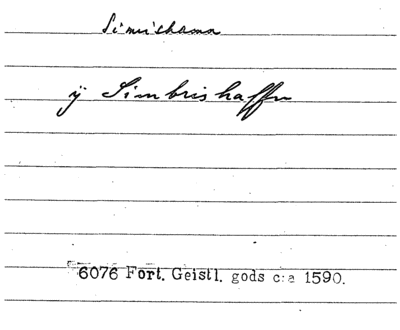 Simrishamn
ÿ Simbrishaffn
6076 Fort. Geistl. gods c:a 1590.